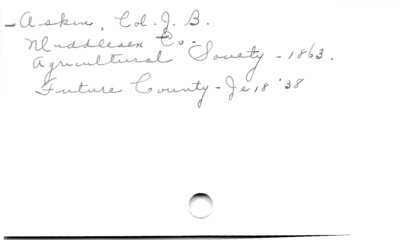 - Askin, Col. J. B.
Middlesex Co.
Agricultural Society - 1863.
Future County - Je 18 '38